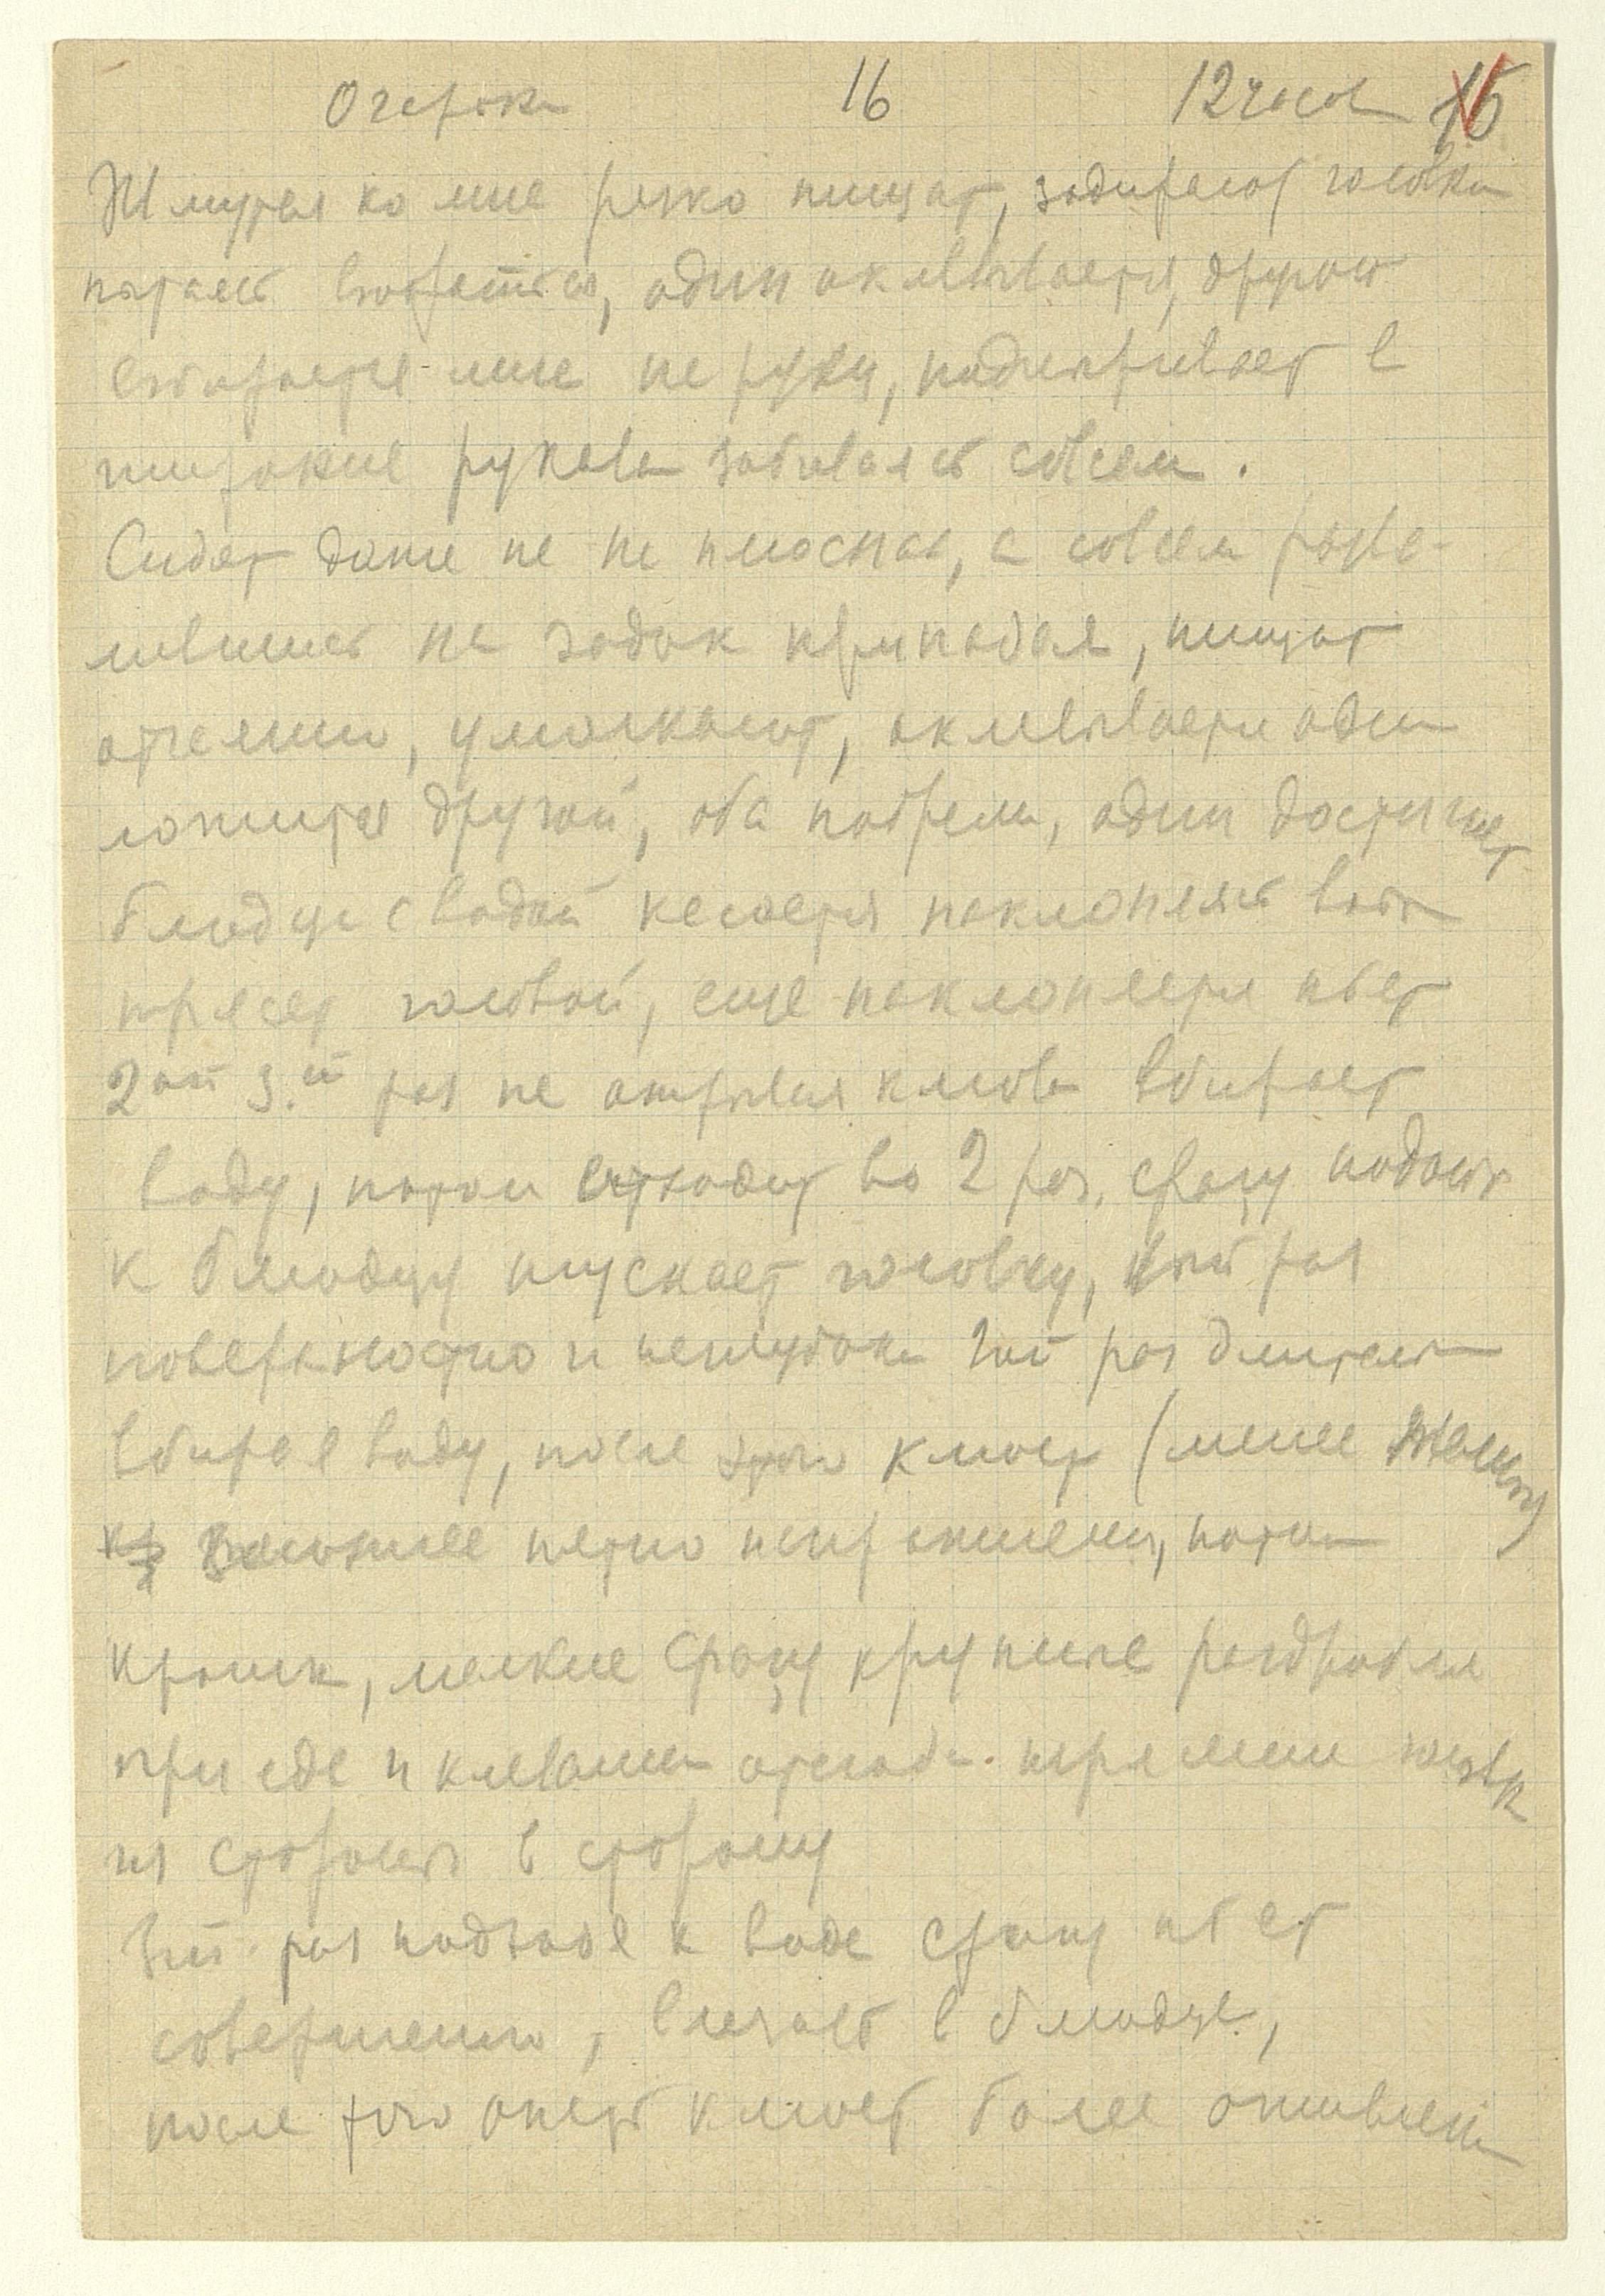 16 12 часов 15
Жмутся ко мне резко пищат, задирают головки
пытаясь, один оклевывается, другой
взбирается мне на руки, подныривает в
широкие рукава забиваясь совсем.
Сидят даже не на плюснах, а совсем
на задок припадая, пищат
отчаянно, умолкают, оклевывается один
ложится другой, оба побрели, один достигнет
блюдца с водой касается наклоняясь воды
трясет головой, еще наклоняется пьет
2ой 3.й раз не открывая клюва вбирает
воду, потом отходит во 2 раз. сразу подойдя
к блюдцу опускает головку, раз
поверхностно и неглубоко 2ой раз длительно
вбирая воду, после этого клюет (менее
пятно, потом
крошки, мелкие сразу крупные раздробляя
при еде и клевании головк
из стороны в сторону
3ий раз подходя к воде сразу пьет
совершенно, влезает в блюдце,
после того опять клюет более оживленно